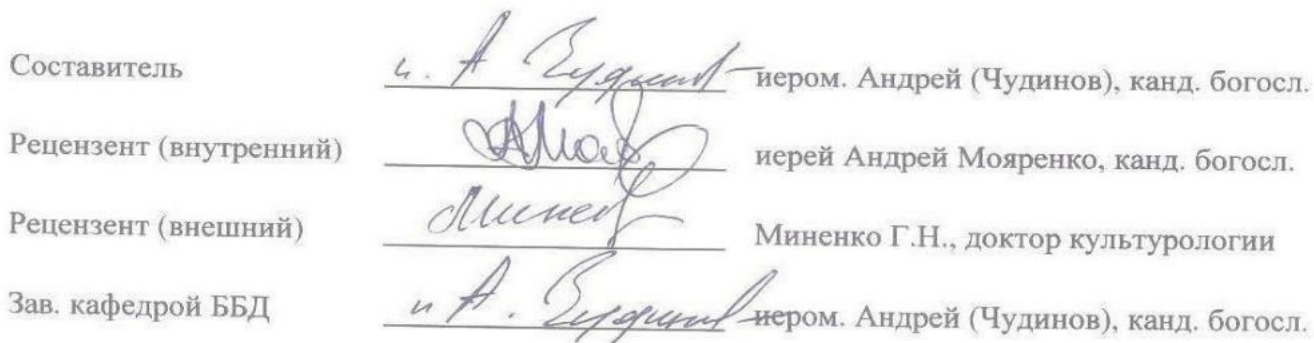 Составитель и. А Чудинов иером. Андрей (Чудинов), канд. богосл.
Рецензент (внутренний) иерей Андрей Мояренко, канд. богосл.
Рецензент (внешний) Миненко Г.Н., доктор культурологии
Зав. кафедрой ББД и А. Чудинов иером. Андрей (Чудинов), канд. богосл.